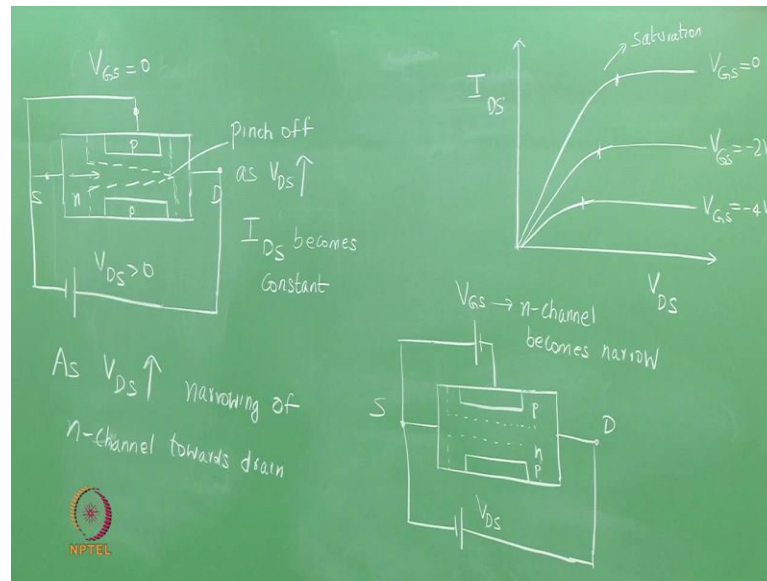 V_GS = 0
P
pinch off
S
n
D
as V_DS ↑
P
I_DS becomes
constant
V_DS > 0
As V_DS ↑ narrowing of
n-channel towards drain
NPTEL
saturation
I_DS
V_GS = 0
V_GS = -2V
V_GS = -4V
V_DS
V_GS → n-channel
becomes narrow
S
P
D
n
P
V_DS